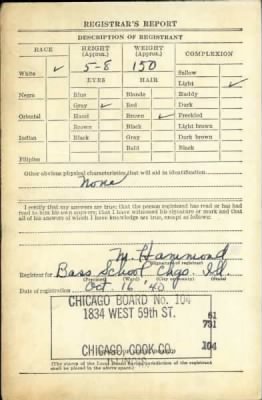 REGISTRAR'S REPORT
DESCRIPTION OF REGISTRANT
RACE HEIGHT (Approx.) WEIGHT (Approx.) COMPLEXION
White ✓ 5-8 150 Sallow
EYES HAIR Light ✓
Negro Blue Blonde Ruddy
Gray ✓ Red Dark
Oriental Hazel Brown ✓ Freckled
Brown Black Light brown
Indian Black Gray Dark brown
Bald Black
Filipino
Other obvious physical characteristics that will aid in identification
None
I certify that my answers are true; that the person registered has read or has had
read to him his own answers; that I have witnessed his signature or mark and that
all of his answers of which I have knowledge are true, except as follows:
M. Hammond
(Signature of registrar)
Registrar for Bass School Chgo. Ill.
(Precinct) (Ward) (City or county) (State)
Date of registration Oct 16 '40
CHICAGO BOARD No. 104
1834 WEST 59th ST. 61
731
CHICAGO, COOK CO. 104
(The stamp of the Local Board having jurisdiction of the registrant
shall be placed in the above space.)